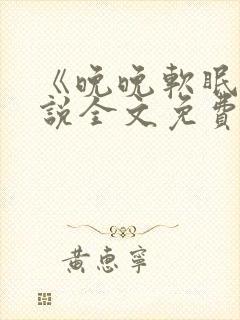 《晚晚軟眠
說全文免費
黃惠寧